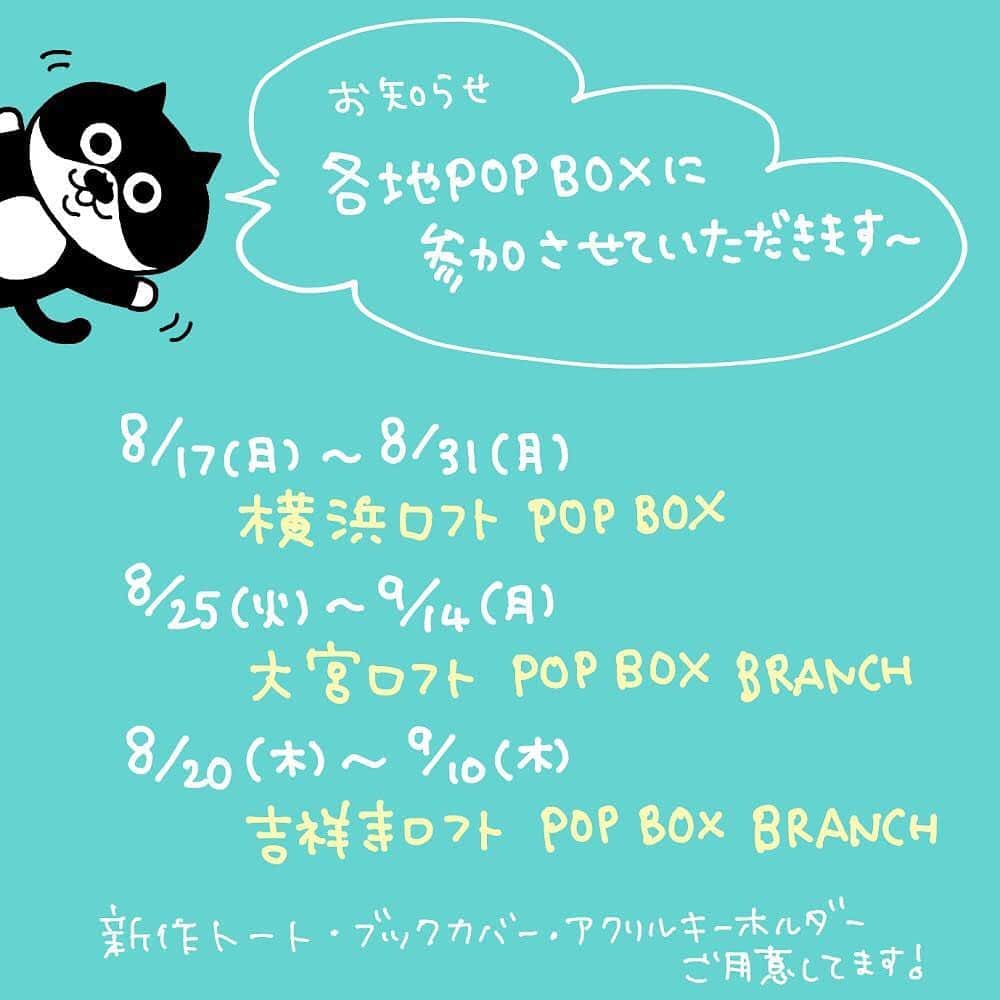 お知らせ
各地POP BOXに
参加させていただきます〜
8/17(月)〜8/31(月)
横浜ロフト POP BOX
8/25(火)〜9/14(月)
大宮ロフト POP BOX BRANCH
8/20(木)〜9/10(木)
吉祥寺ロフト POP BOX BRANCH
新作トート・ブックカバー・アクリルキーホルダー
ご用意してます!